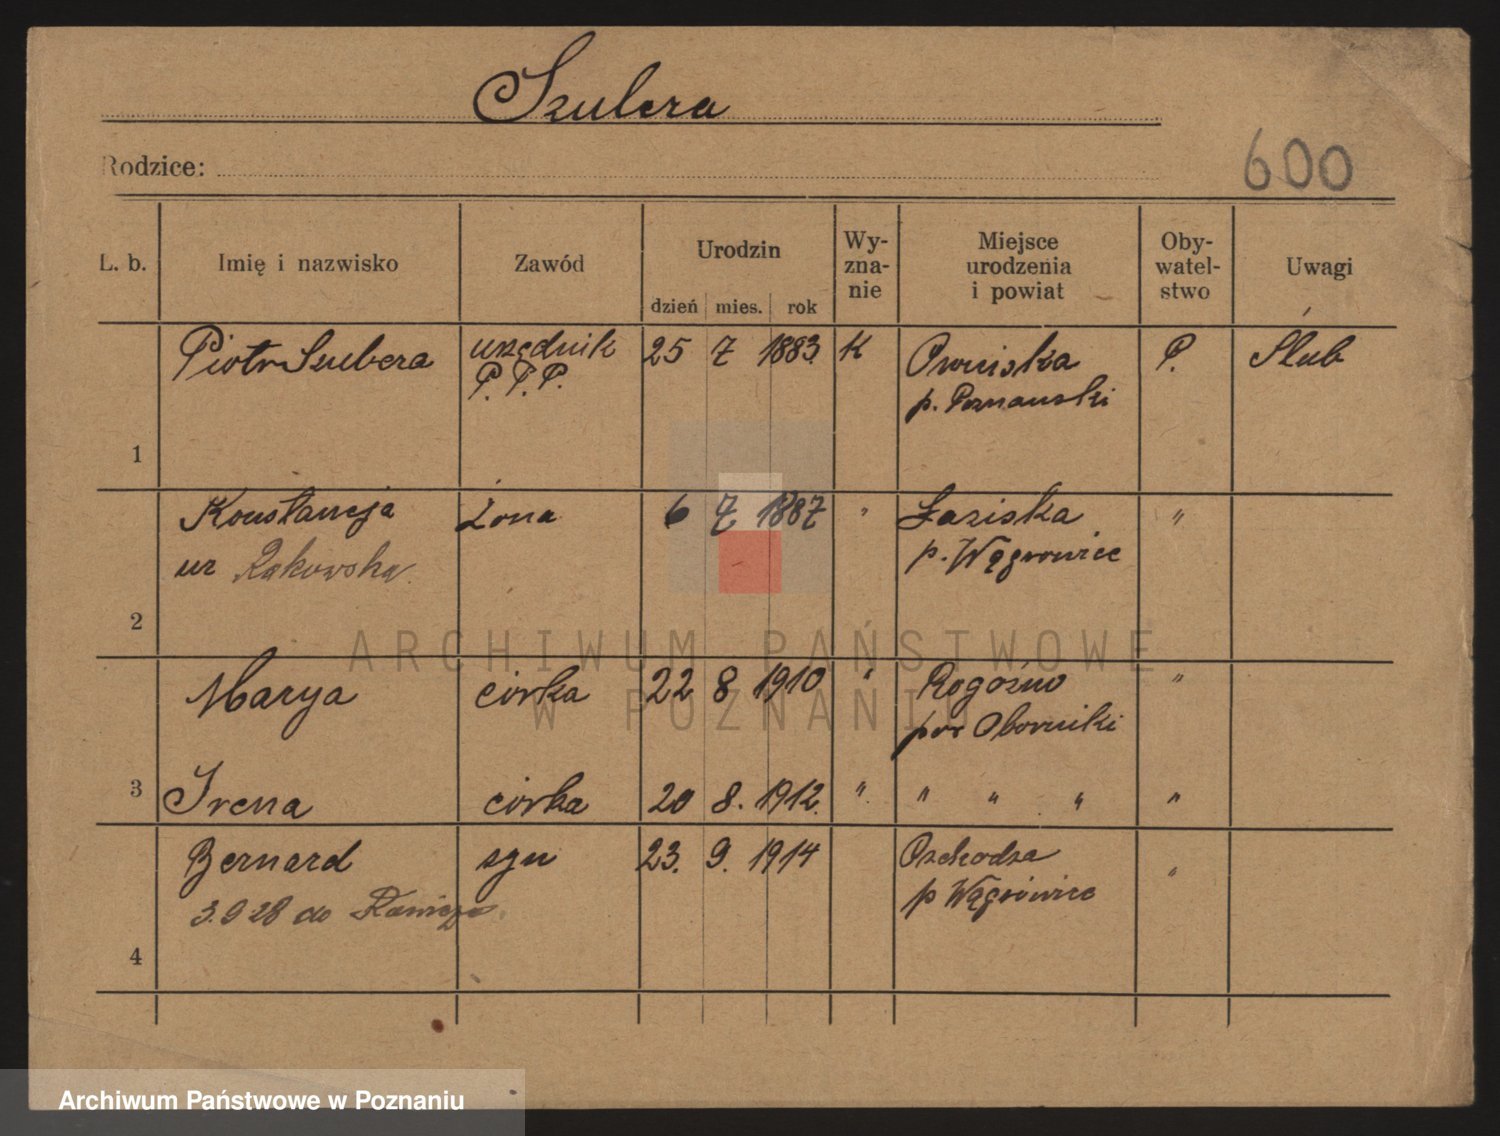 Szulera
Rodzice:
600
L. b. Imię i nazwisko Zawód Urodzin Wy- Miejsce Oby- Uwagi
zna- urodzenia watel-
dzień mies. rok nie i powiat stwo
Piotr urzędnik 25 7 1883. K p. Poznański P. Slub
P. P. P.
1
Konstancja Żona 6 7 1887 " Łaziska "
ur Rąkowska p. Wągrowiec
2
ARCHIWUM PAŃSTWOWE
W POZNANIU
Marya córka 22 8 1910 " Rogoźno "
pow Oborniki
3 Irena córka 20 8. 1912. " " " " "
Bernard syn 23. 9. 1914 "
3.9 28 do p Wągrówiec
4
Archiwum Państwowe w Poznaniu